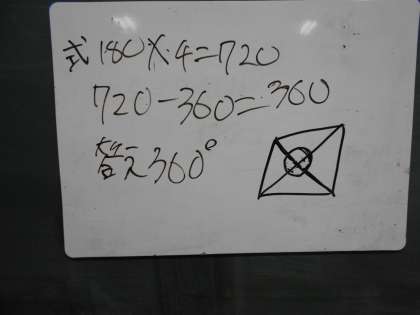 式180×4=720
720-360=360
答え360°